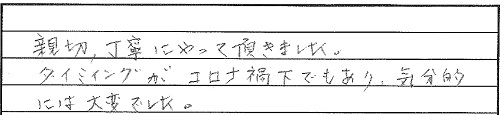 親切,丁寧にやって頂きました。
タイミングが コロナ禍下でもあり、気分的
には大変でした。